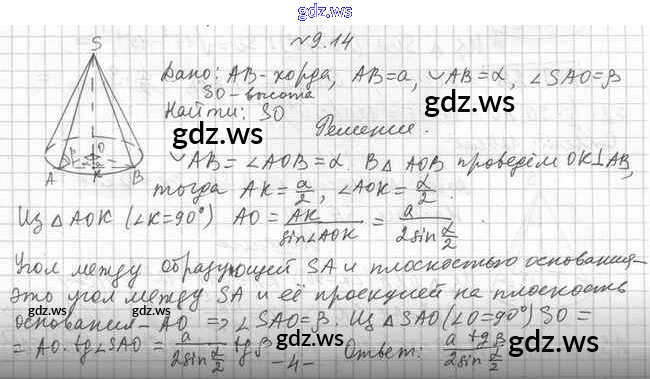 gdz.ws
№9.14
S
Дано: AB - хорда, AB=a, ◡AB=α, ∠SAO=β
SO - высота
Найти: SO
gdz.ws
gdz.ws
Решение.
◡AB = ∠AOB = α. В △ AOB проведём OK⊥AB,
O
A K B
тогда AK = a/2, ∠AOK = α/2.
Из △ AOK (∠K=90°) AO = AK/sin∠AOK = a/2sin α/2
gdz.ws
gdz.ws
Угол между образующей SA и плоскостью основания -
это угол между SA и её проекцией на плоскость
основания - AO ⇒ ∠SAO=β. Из △SAO (∠O=90°) SO =
= AO·tg∠SAO = a/2sin α/2 tgβ Ответ: a tgβ/2sin α/2
-4-
gdz.ws